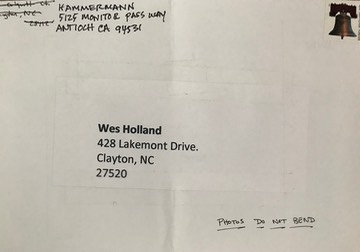 NC
HAMMERMANN
5125 MONITOR PASS WAY
ANTIOCH CA 94531
Wes Holland
428 Lakemont Drive.
Clayton, NC
27520
PHOTOS DO NOT BEND